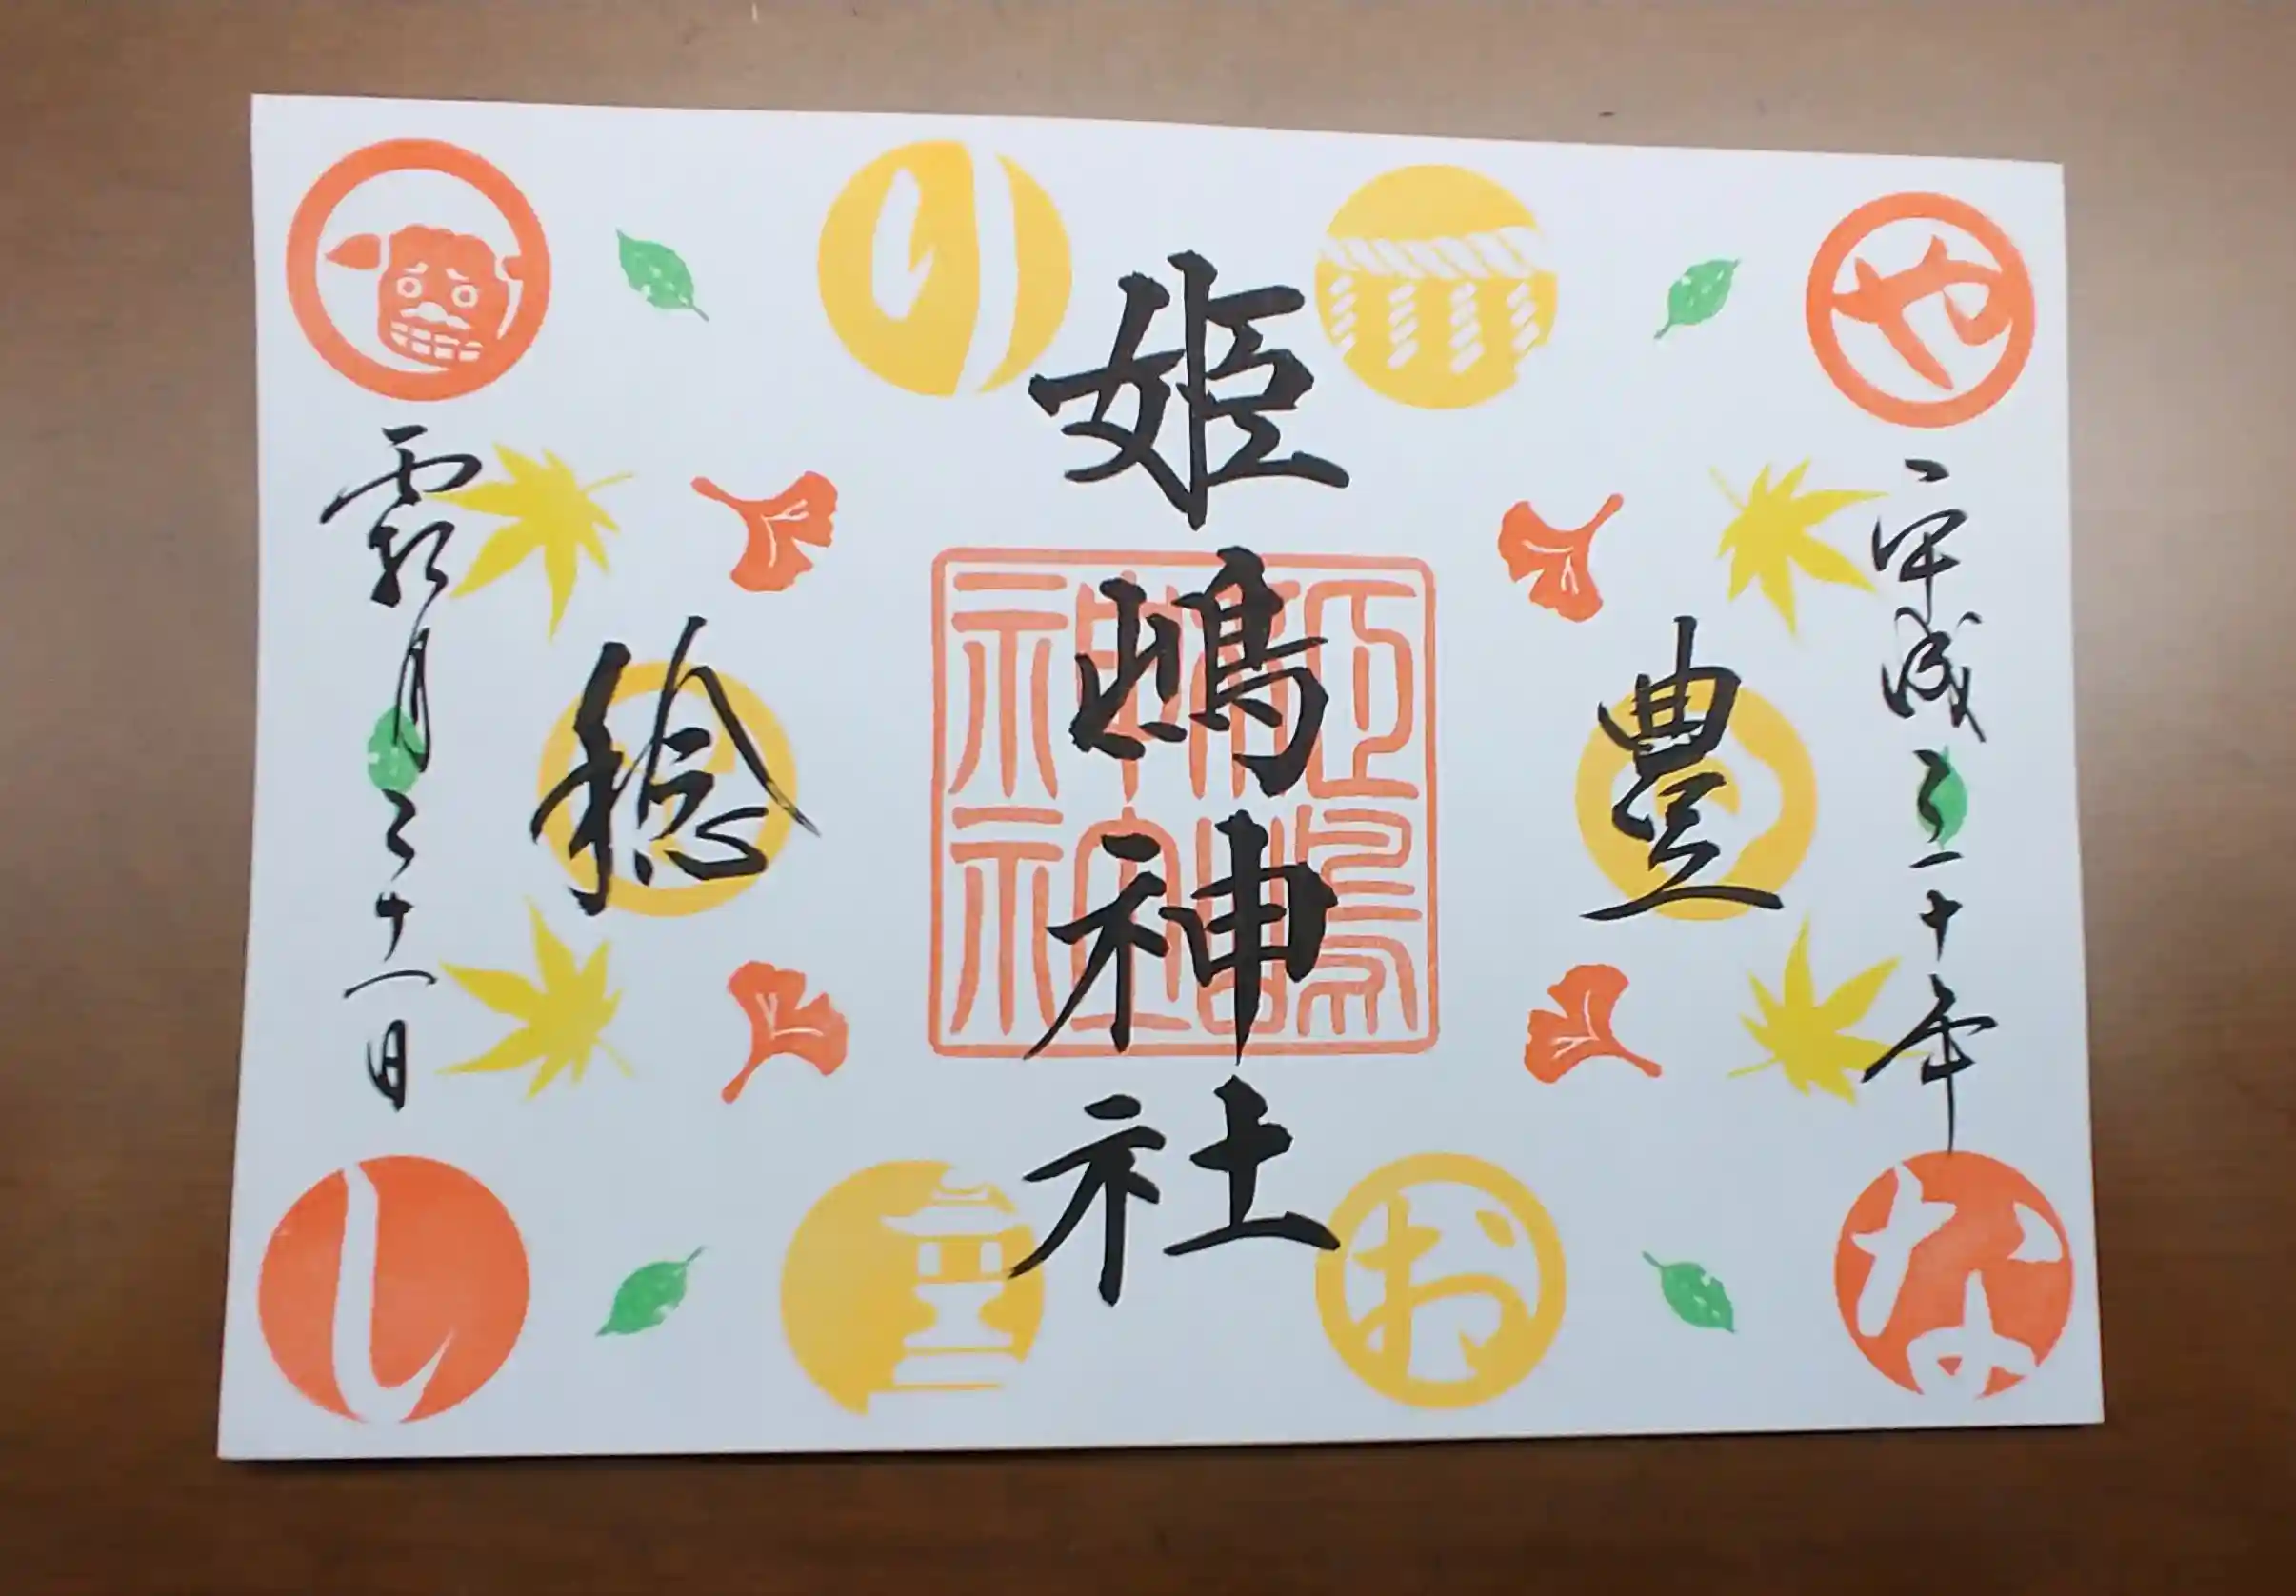 や
平成三十年
な
豊
お
姫嶋神社
姫嶋
神社
り
稔
霜月二十一日
し